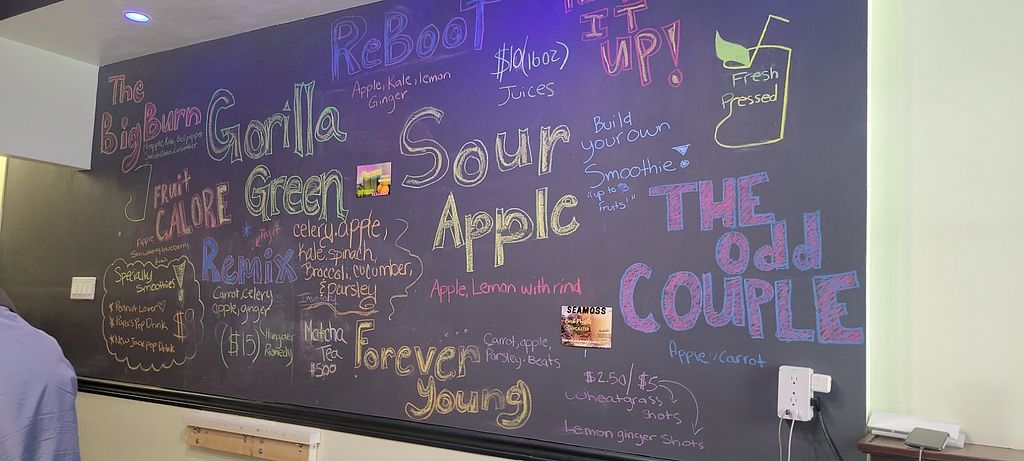 The
Big Burn
ReBoot
Apple, Kale, lemon
Ginger
$10 (16oz)
Juices
IT
UP!
Fresh
Pressed
Gorilla
Green
celery, apple,
Kale, spinach,
Broccoli, cucumber,
& parsley
Sour
Apple
Apple, Lemon with rind
Build
your own
Smoothie!
"up to 3
fruits!"
THE
Odd
COUPLE
Apple / Carrot
FRUIT
CALORE
Apple
Strawberry, blueberry
*Try it
Remix
Carrot, celery
apple, ginger
($15)
Hangover
Remedy
Specialty
Smoothies!
*Peanut Lover
*Papa's Pop Drink
*New Jack pop Drink
$9
Matcha
Tea
$500
Forever
Young
Carrot, apple,
Parsley, Beats
SEAMOSS
$2.50/$5
Wheatgrass
Shots
Lemon ginger Shots